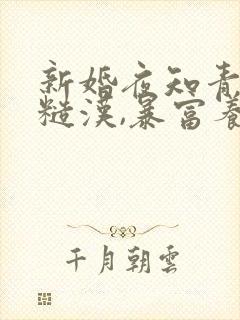 新婚夜知青
糙漢,暴富養
千月朝雲